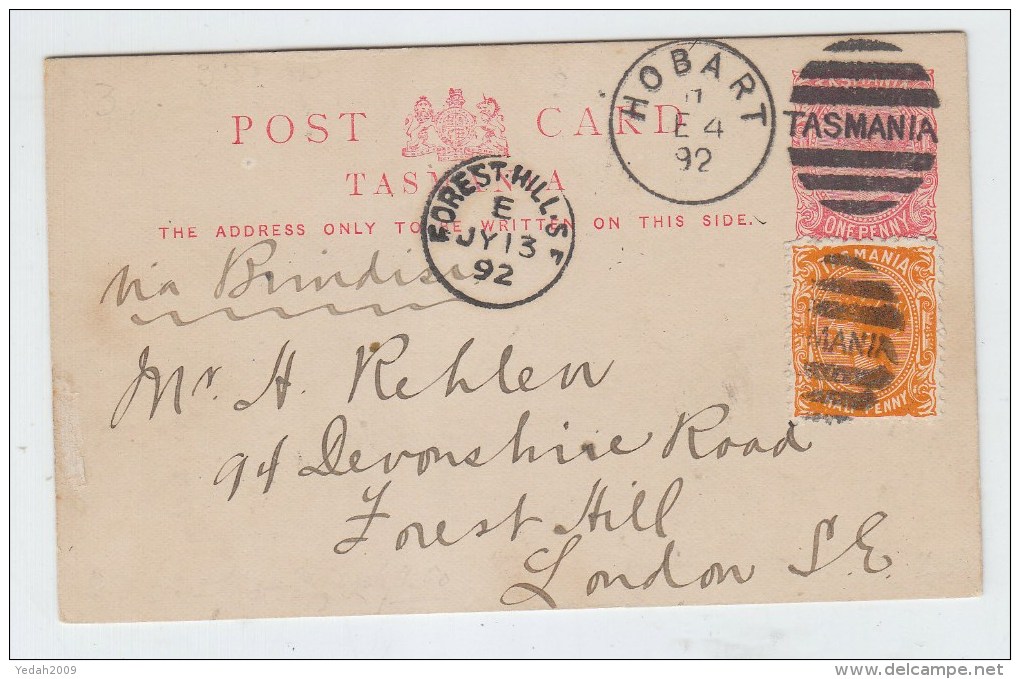 POST CARD
TASMANIA
THE ADDRESS ONLY TO BE WRITTEN ON THIS SIDE.
HOBART
E 4
92
TASMANIA
ONE PENNY
FOREST-HILL-S
E
JY 13
92
TASMANIA
MANIA
HALF PENNY
via Brindisi
Mr H. Rehlen
94 Devonshire Road
Forest Hill
London S.E.
Yedah2009
www.delcampe.net